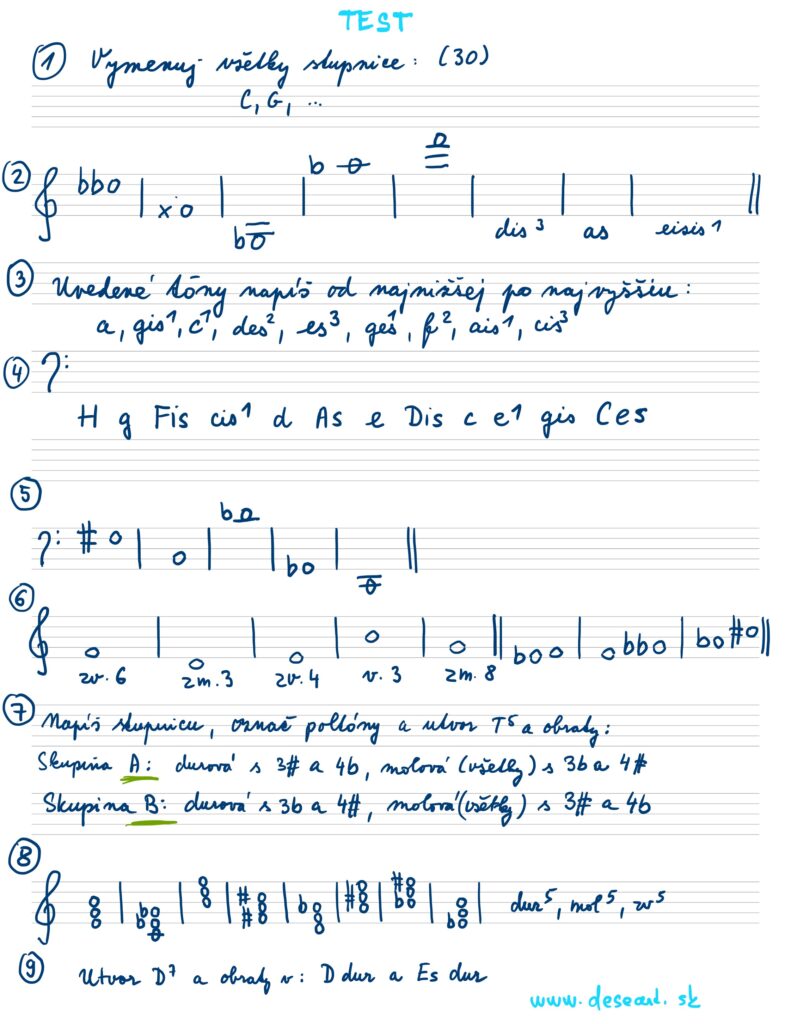 TEST
① Vymenuj všetky stupnice: (30)
C, G, ...
②
dis³ as eisis¹
③ Uvedené tóny napíš od najnižšej po najvyššiu:
a, gis¹, c¹, des², es³, ges¹, f², ais¹, cis³
④
H g Fis cis¹ d As e Dis c e¹ gis Ces
⑤
⑥
zv. 6 zm. 3 zv. 4 v. 3 zm. 8
⑦ Napíš stupnicu, označ poltóny a utvor T⁵ a obraty:
Skupina A: durová s 3# a 4b, molová (všetky) s 3b a 4#
Skupina B: durová s 3b a 4#, molová (všetky) s 3# a 4b
⑧
dur⁵, mol⁵, zv⁵
⑨ Utvor D⁷ a obraty v: D dur a Es dur
www.deseart.sk